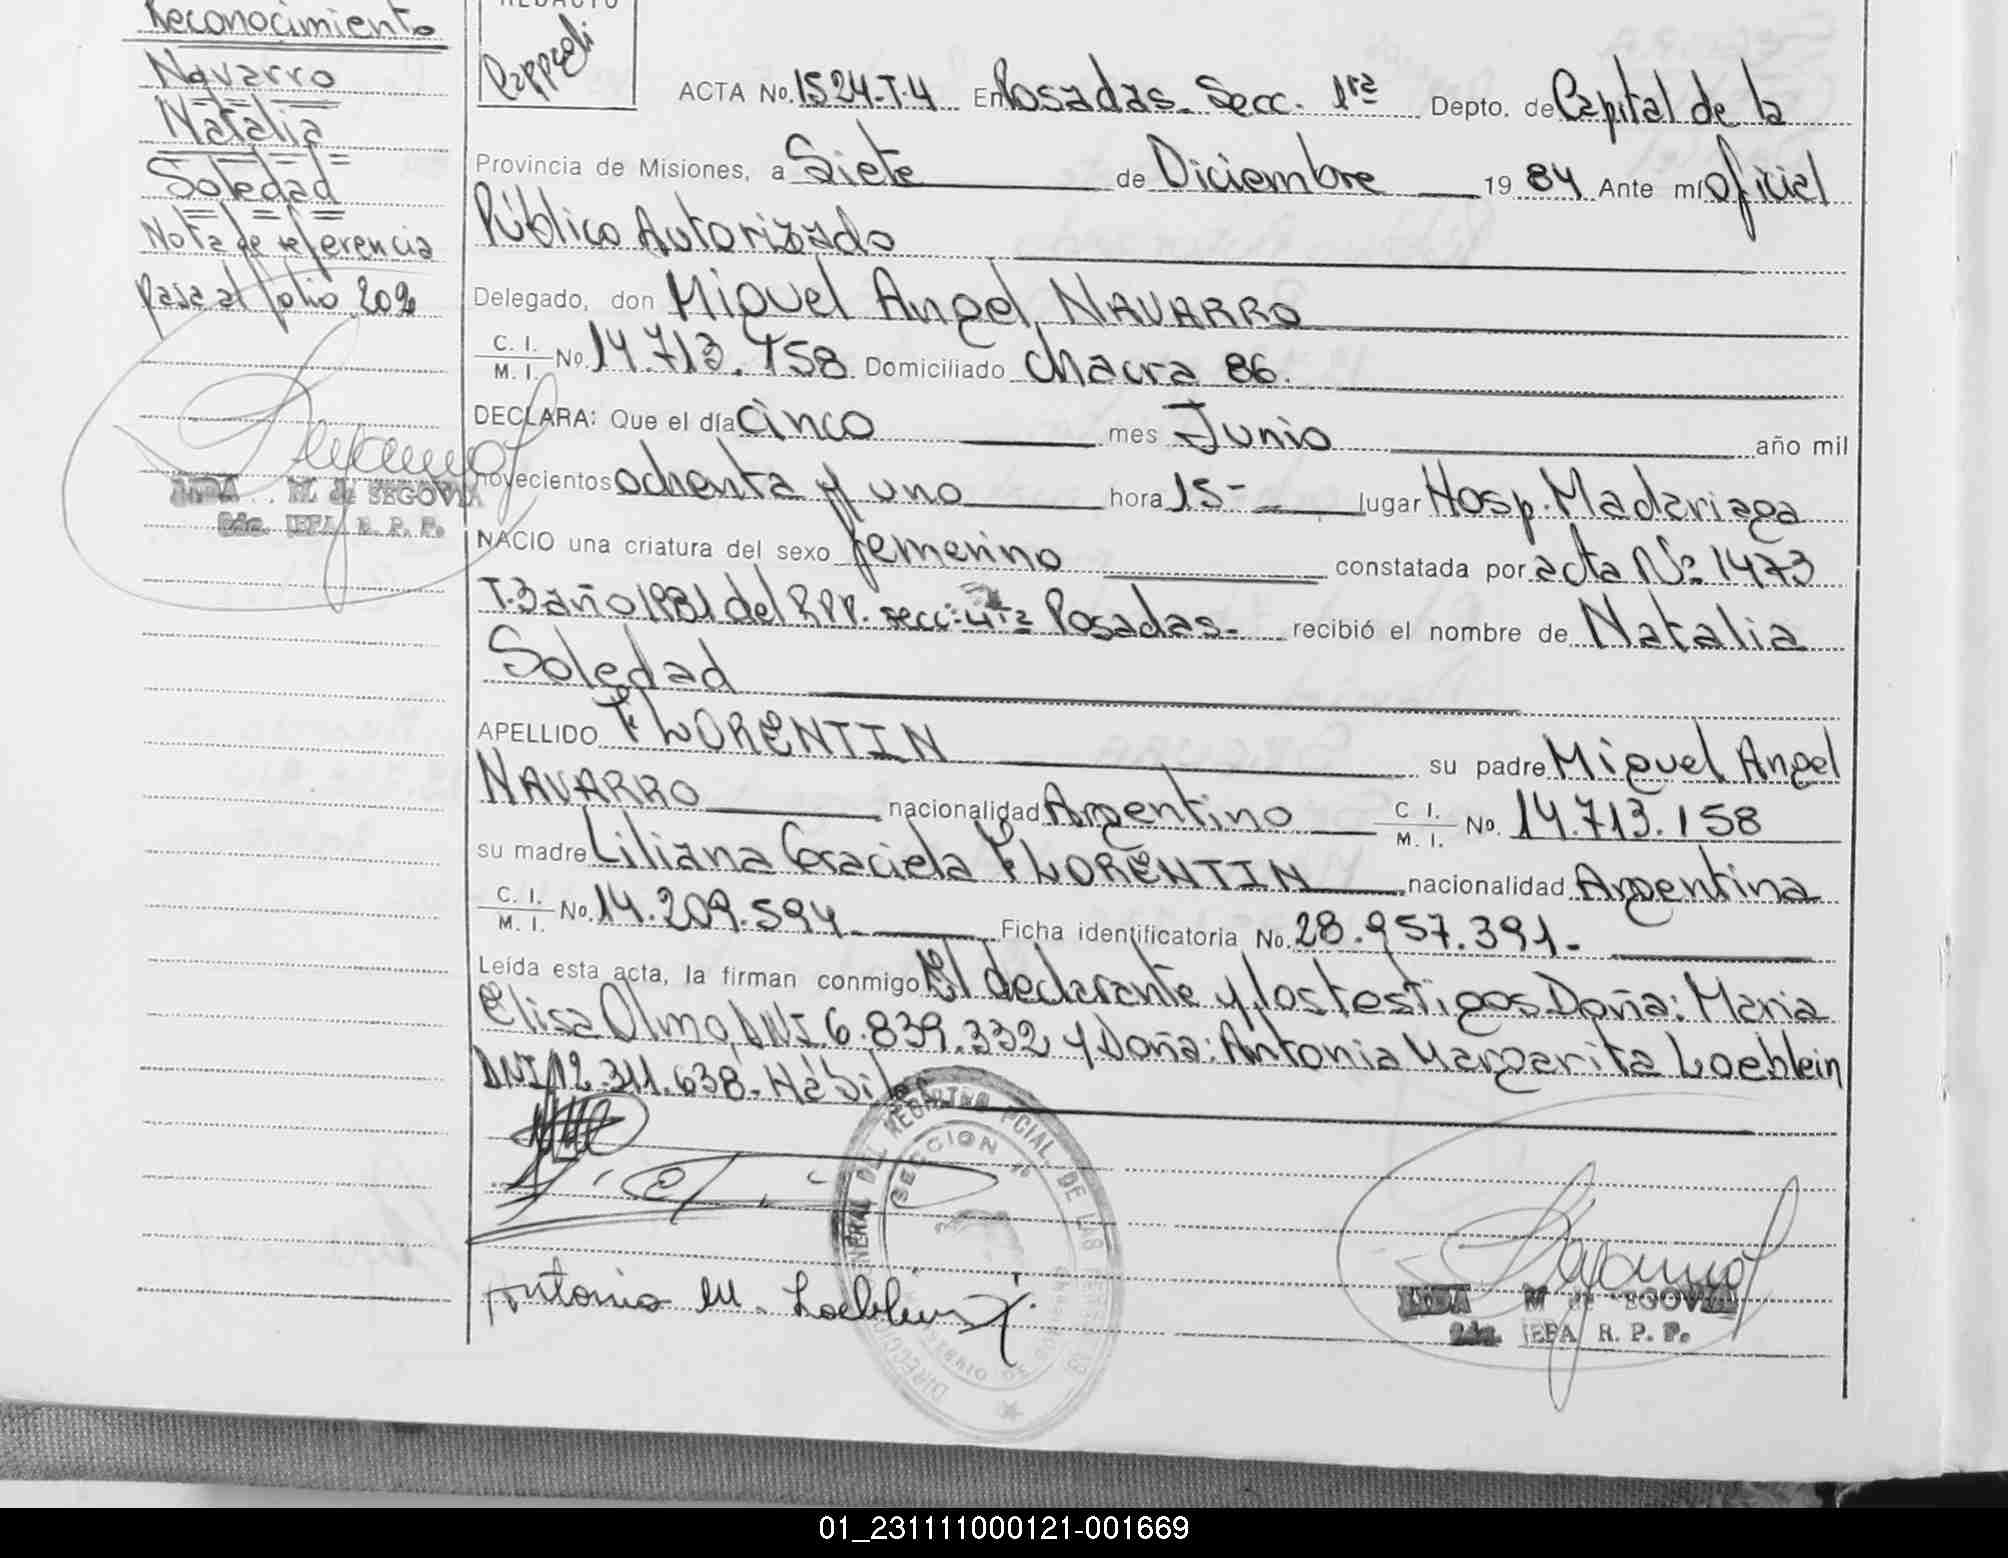 Reconocimiento
Navarro
Natalia
Soledad
Nota de referencia
Pasa al folio 202
LIDA M de SEGOVIA
Sda. JEFA R. P. P.
REDACTO
ACTA No. 1524-T-4 En Posadas. Secc. 1ra Depto. de Capital de la
Provincia de Misiones, a Siete de Diciembre 1984 Ante mí Oficial
Público Autorizado
Delegado, don Miguel Angel NAVARRO
C. I. M. I. No. 14.713.158 Domiciliado Chacra 86.
DECLARA: Que el día Cinco mes Junio año mil
novecientos ochenta y uno hora 15- lugar Hosp. Madariaga
NACIO una criatura del sexo femenino constatada por acta Nº 1473
T.3 año 1981 del R.P.P. secc: 4ta Posadas- recibió el nombre de Natalia
Soledad
APELLIDO FLORENTIN su padre Miguel Angel
NAVARRO nacionalidad Argentino C. I. M. I. No. 14.713.158
su madre Liliana Graciela FLORENTIN nacionalidad Argentina
C. I. M. I. No. 14.209.594- Ficha identificatoria No. 28.957.391-
Leída esta acta, la firman conmigo El declarante y los testigos Doña: Maria
Elisa Olmo, DNI. 6.839.332 y Doña: Antonia Margarita Loeblein
DNI 12.311.638- Hábiles
SECCION
DEL REGISTRO PCIAL. DE LAS PERSONAS
Antonia M. Loeblein
M de SEGOVIA
Sda. JEFA R. P. P.
01_231111000121-001669